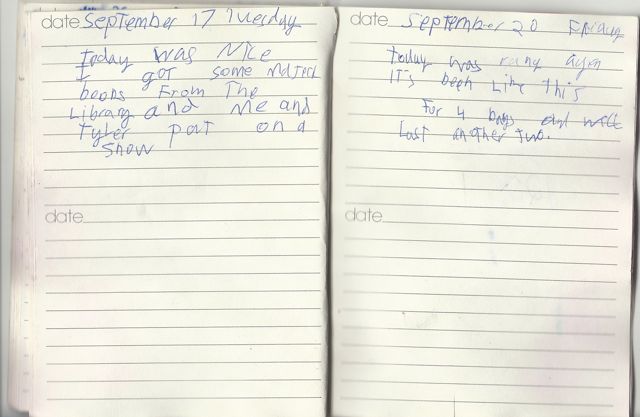 date September 17 Tuesday
Today was Nice
I got some
books From The
Library and Me and
Tyler put on a
Show
date
date September 20 Friday
today was rany agen
It's been Like this
For 4 days and will
Last another two.
date